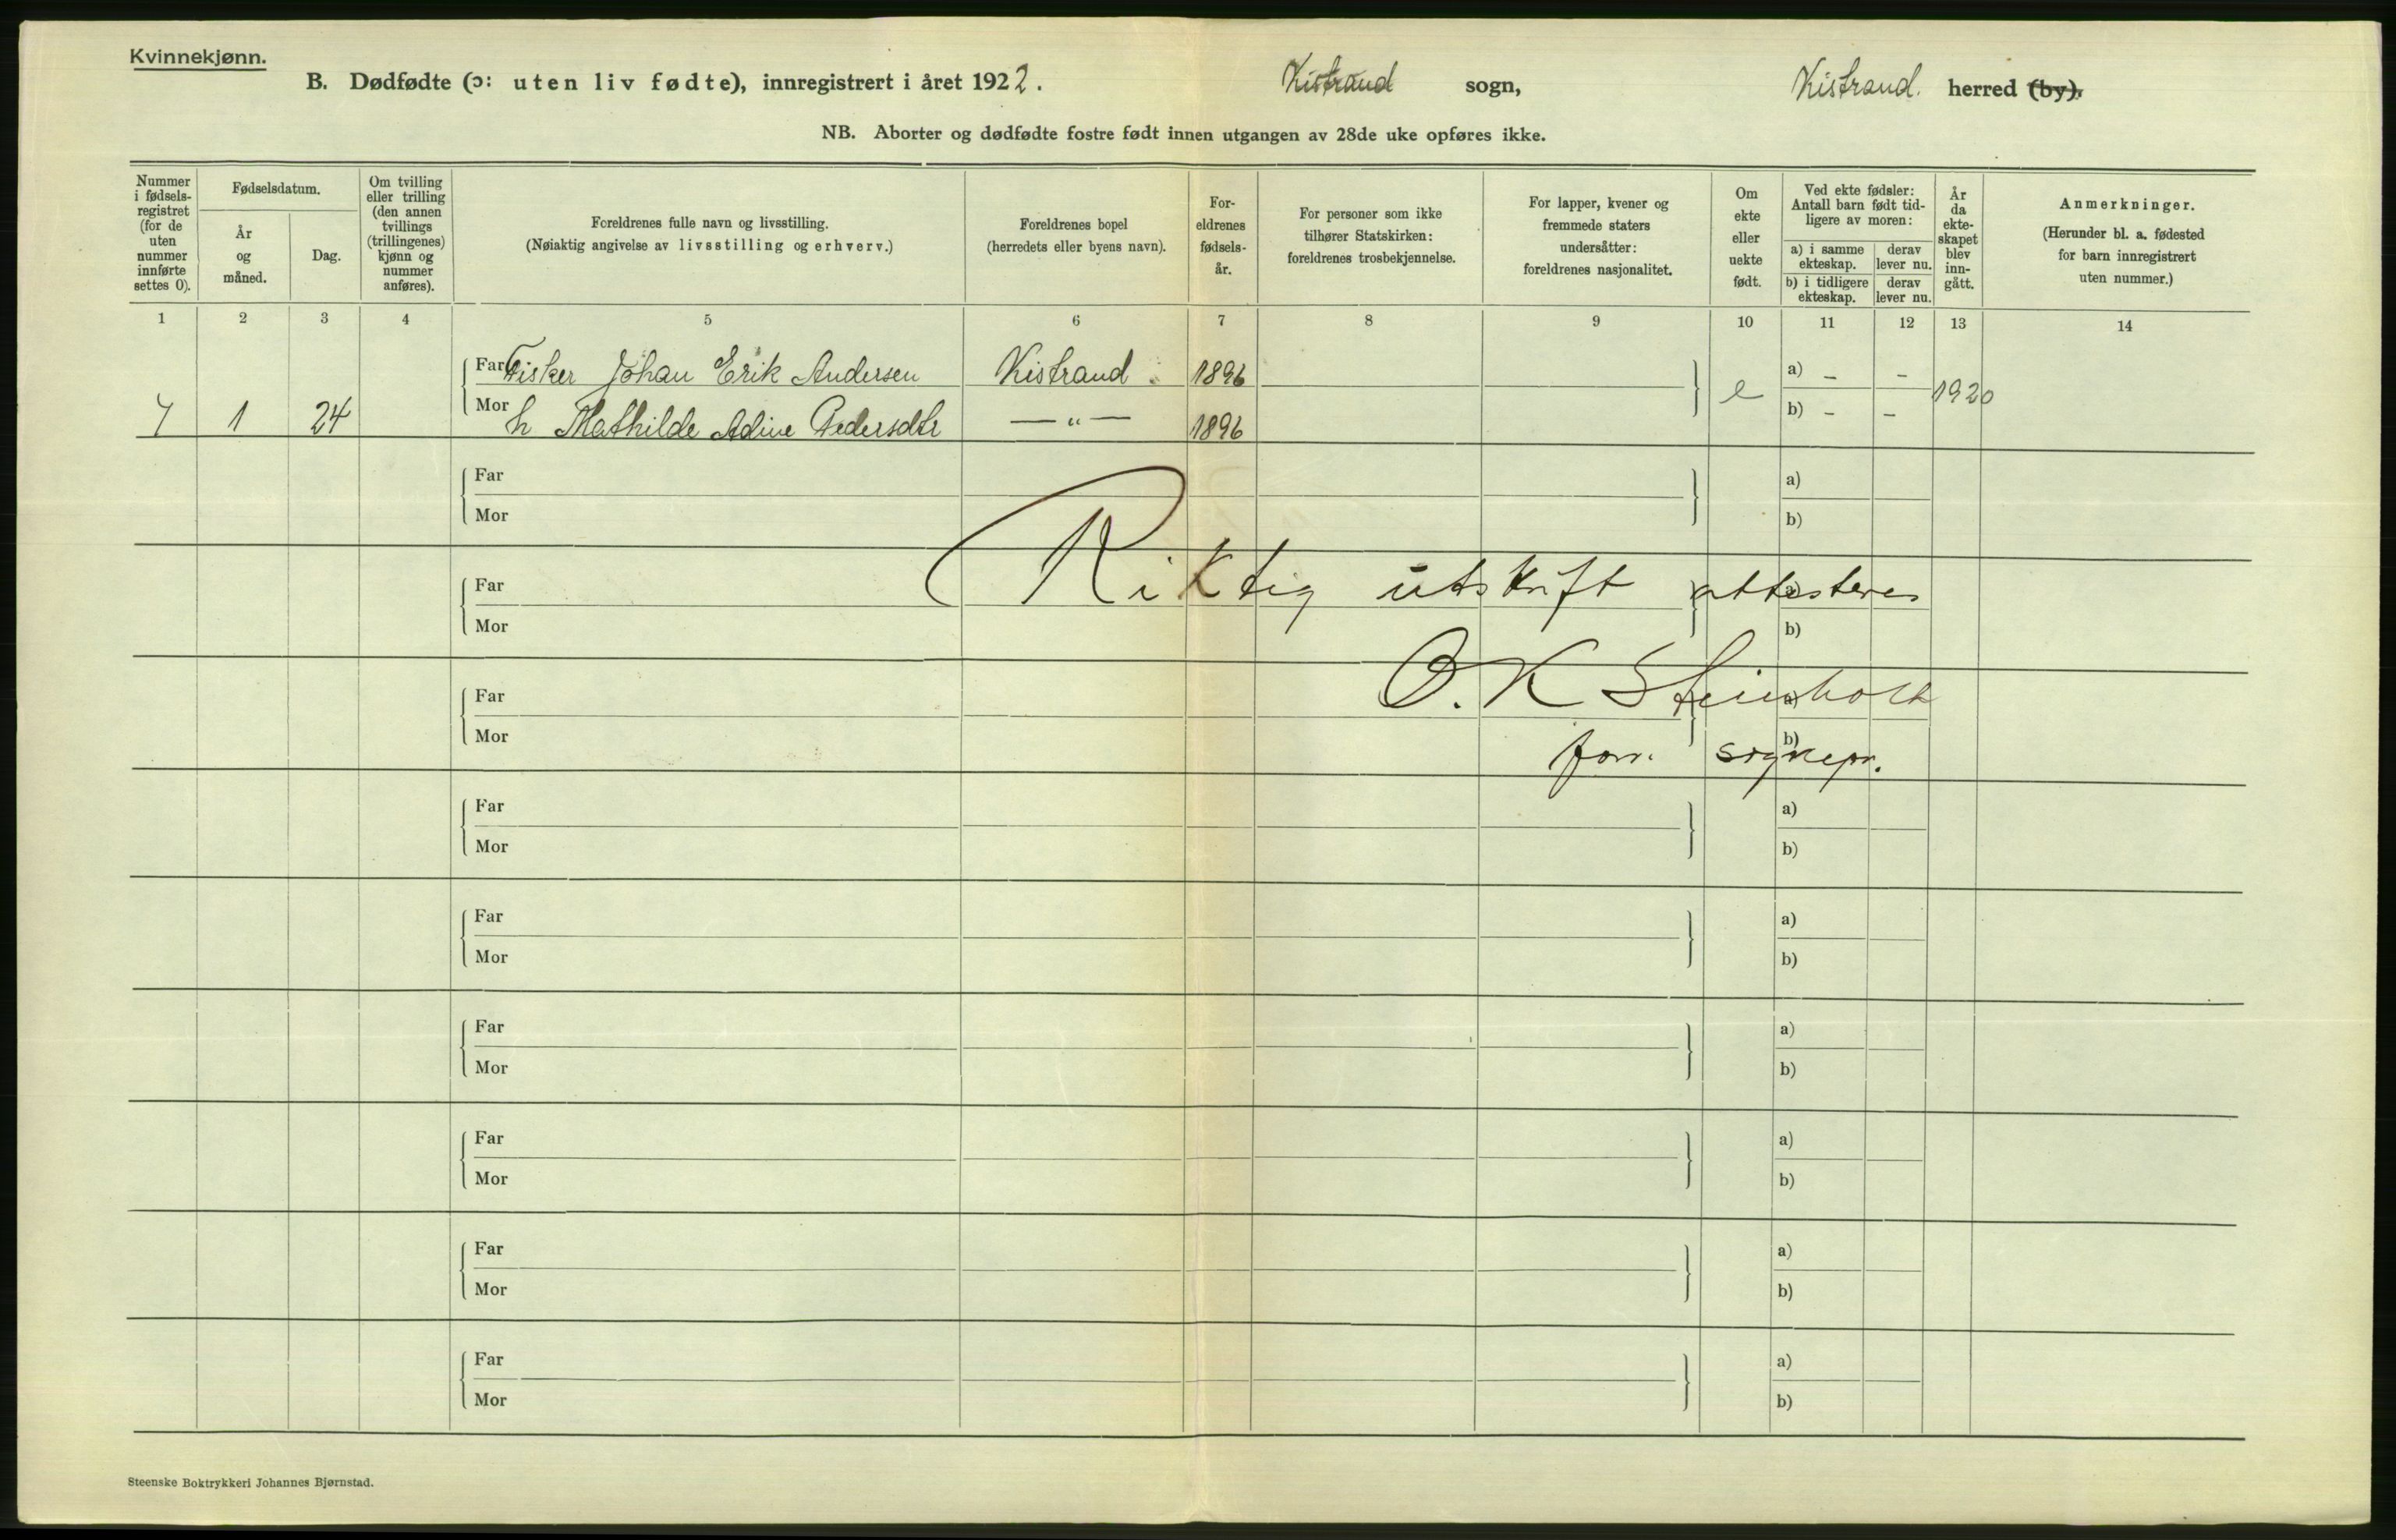 Kvinnekjønn.
B. Dødfødte (ɔ: uten liv fødte), innregistrert i året 1922. Kistrand sogn, Kistrand. herred (by).
NB. Aborter og dødfødte fostre født innen utgangen av 28de uke opføres ikke.
Nummer i fødselsregistret (for de uten nummer innførte settes 0).
Fødselsdatum.
År og måned.
Dag.
Om tvilling eller trilling (den annen tvillings (trillingenes) kjønn og nummer anføres).
Foreldrenes fulle navn og livsstilling.
(Nøiaktig angivelse av livsstilling og erhverv.)
Foreldrenes bopel
(herredets eller byens navn).
Foreldrenes fødselsår.
For personer som ikke tilhører Statskirken: foreldrenes trosbekjennelse.
For lapper, kvener og fremmede staters undersåtter: foreldrenes nasjonalitet.
Om ekte eller uekte født.
Ved ekte fødsler: Antall barn født tidligere av moren:
a) i samme ekteskap. derav lever nu.
b) i tidligere ekteskap. derav lever nu.
År da ekteskapet blev inngått.
Anmerkninger.
(Herunder bl. a. fødested for barn innregistrert uten nummer.)
1 2 3 4 5 6 7 8 9 10 11 12 13 14
Far Fisker Johan Erik Andersen Kistrand 1896 a) – –
7 1 24 Mor h Mathilde Adine Pedersdtr — " — 1896 e b) – – 1920
Far a)
Mor b)
Riktig utskrift attesteres
Far
Mor b)
O. K Steinholt
Far a)
Mor b)
forr. sognepr.
Far a)
Mor b)
Far a)
Mor b)
Far a)
Mor b)
Far a)
Mor b)
Far a)
Mor b)
Far a)
Mor b)
Steenske Boktrykkeri Johannes Bjørnstad.